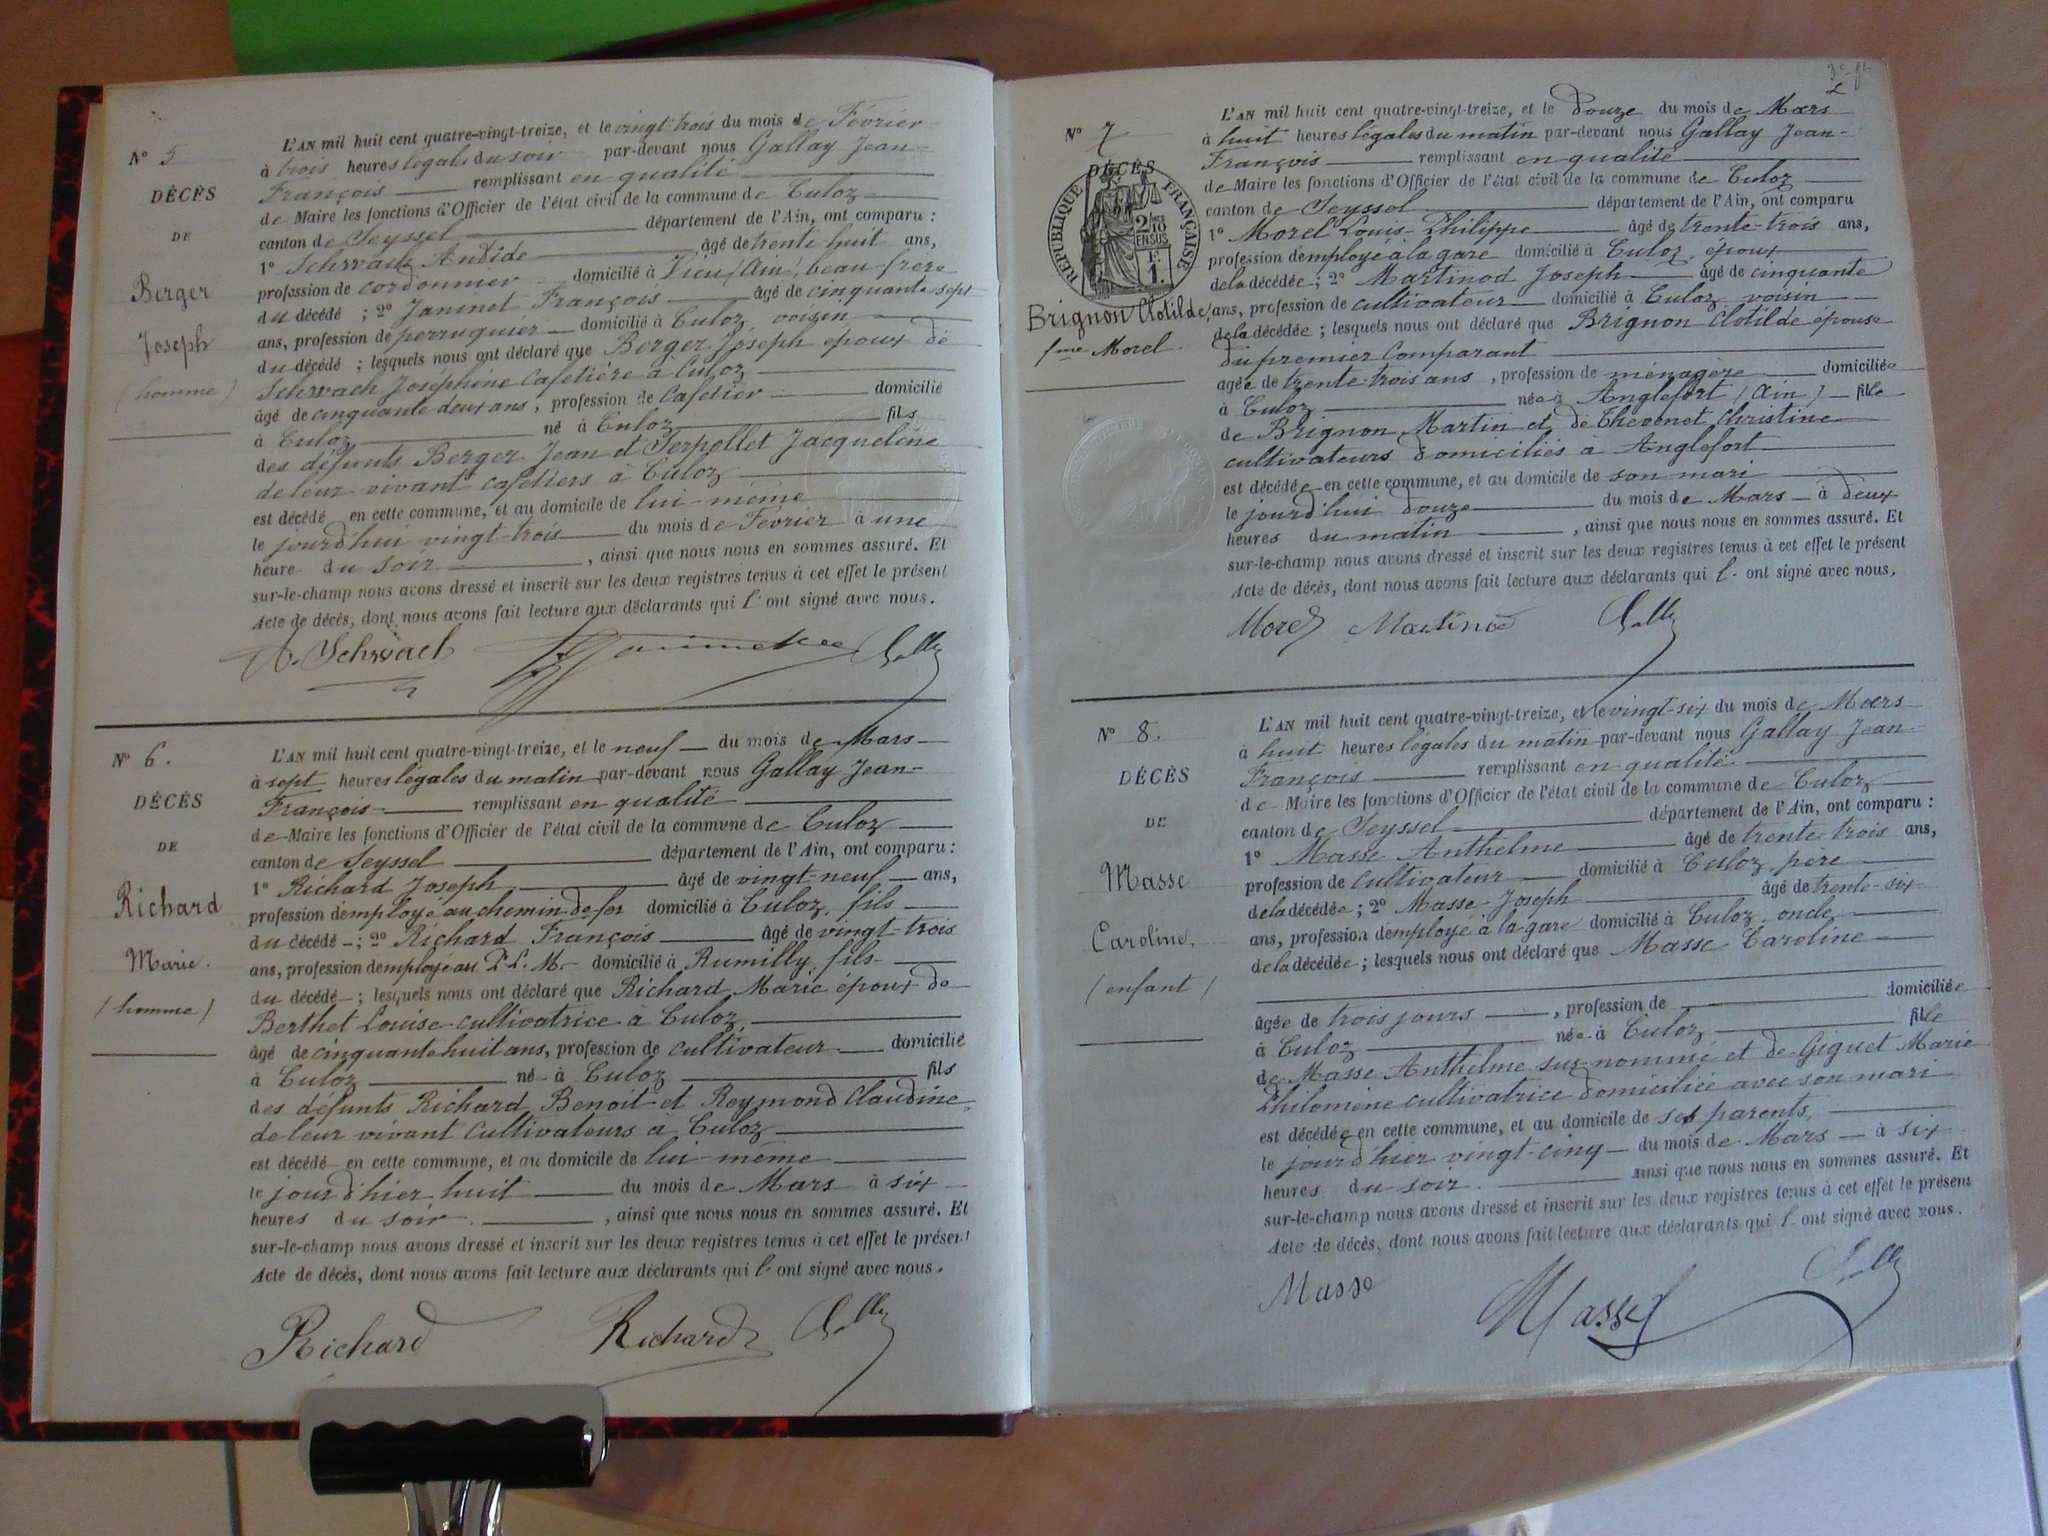 N° 5
DÉCÈS
DE
Berger
Joseph
(homme)
L'AN mil huit cent quatre-vingt-treize, et le vingt trois du mois de Février
à trois heures légales du soir par-devant nous Gallay Jean-
François remplissant en qualité
de Maire les fonctions d'Officier de l'état civil de la commune de Culoz
canton de Seyssel département de l'Ain, ont comparu :
1° Schwach Andide âgé de trente huit ans,
profession de cordonnier domicilié à Vieu (Ain), beau-frère
du décédé ; 2° Janinet François âgé de cinquante sept
ans, profession de perruquier domicilié à Culoz, voisin
du décédé ; lesquels nous ont déclaré que Berger Joseph époux de
Schwach Joséphine cafetière à Culoz
âgé de cinquante deux ans, profession de cafetier domicilié
à Culoz né à Culoz fils
des défunts Berger Jean et Serpollet Jacqueline
de leur vivant cafetiers à Culoz
est décédé en cette commune, et au domicile de lui-même
le jourd'hui vingt-trois du mois de Février à une
heure du soir, ainsi que nous nous en sommes assuré. Et
sur-le-champ nous avons dressé et inscrit sur les deux registres tenus à cet effet le présent
Acte de décès, dont nous avons fait lecture aux déclarants qui l'ont signé avec nous.
A. Schwach
N° 6.
DÉCÈS
DE
Richard
Marie.
(homme)
L'AN mil huit cent quatre-vingt-treize, et le neuf du mois de Mars
à sept heures légales du matin par-devant nous Gallay Jean-
François remplissant en qualité
de Maire les fonctions d'Officier de l'état civil de la commune de Culoz
canton de Seyssel département de l'Ain, ont comparu :
1° Richard Joseph, âgé de vingt-neuf ans,
profession d'employé au chemin de fer domicilié à Culoz, fils
du décédé ; 2° Richard François âgé de vingt-trois
ans, profession d'employé au P. L. M. domicilié à Rumilly, fils
du décédé ; lesquels nous ont déclaré que Richard Marie époux de
Berthet Louise cultivatrice à Culoz,
âgé de cinquante huit ans, profession de cultivateur domicilié
à Culoz né à Culoz fils
des défunts Richard Benoit et Reymond Claudine,
de leur vivant cultivateurs à Culoz
est décédé en cette commune, et au domicile de lui-même
le jourd'hier huit du mois de Mars à six
heures du soir, ainsi que nous nous en sommes assuré. Et
sur-le-champ nous avons dressé et inscrit sur les deux registres tenus à cet effet le présent
Acte de décès, dont nous avons fait lecture aux déclarants qui l'ont signé avec nous.
Richard Richard
N° 7
DÉCÈS
RÉPUBLIQUE FRANÇAISE
2/10 EN SUS
F. 1.
Brignon Clotilde,
fme Morel.
L'AN mil huit cent quatre-vingt-treize, et le douze du mois de Mars
à huit heures légales du matin par-devant nous Gallay Jean-
François remplissant en qualité
de Maire les fonctions d'Officier de l'état civil de la commune de Culoz
canton de Seyssel département de l'Ain, ont comparu
1° Morel Louis-Philippe âgé de trente-trois ans,
profession d'employé à la gare domicilié à Culoz, époux
de la décédée ; 2° Martinod Joseph âgé de cinquante
ans, profession de cultivateur domicilié à Culoz, voisin
de la décédée ; lesquels nous ont déclaré que Brignon Clotilde épouse
du premier comparant
agée de trente-trois ans, profession de ménagère domiciliée
à Culoz née à Anglefort (Ain) fille
de Brignon Martin et de Thevenet Christine
cultivateurs domiciliés à Anglefort
est décédée en cette commune, et au domicile de son mari
le jourd'hui douze du mois de Mars à deux
heures du matin, ainsi que nous nous en sommes assuré. Et
sur-le-champ nous avons dressé et inscrit sur les deux registres tenus à cet effet le présent
Acte de décès, dont nous avons fait lecture aux déclarants qui l'ont signé avec nous.
Morel Martinod
N° 8.
DÉCÈS
DE
Masse
Caroline,
(enfant)
L'AN mil huit cent quatre-vingt-treize, et le vingt-six du mois de Mars
à huit heures légales du matin par-devant nous Gallay Jean-
François remplissant en qualité
de Maire les fonctions d'Officier de l'état civil de la commune de Culoz
canton de Seyssel département de l'Ain, ont comparu :
1° Masse Anthelme âgé de trente-trois ans,
profession de cultivateur domicilié à Culoz, père
de la décédée ; 2° Masse Joseph âgé de trente-six
ans, profession d'employé à la gare domicilié à Culoz, oncle,
de la décédée ; lesquels nous ont déclaré que Masse Caroline
âgée de trois jours, profession de domiciliée
à Culoz née à Culoz fille
de Masse Anthelme sus-nommé et de Giguet Marie
Philomène cultivatrice domiciliée avec son mari
est décédée en cette commune, et au domicile de ses parents,
le jourd'hier vingt-cinq du mois de Mars à six
heures du soir. ainsi que nous nous en sommes assuré. Et
sur-le-champ nous avons dressé et inscrit sur les deux registres tenus à cet effet le présent
Acte de décès, dont nous avons fait lecture aux déclarants qui l'ont signé avec nous.
Masse Masse